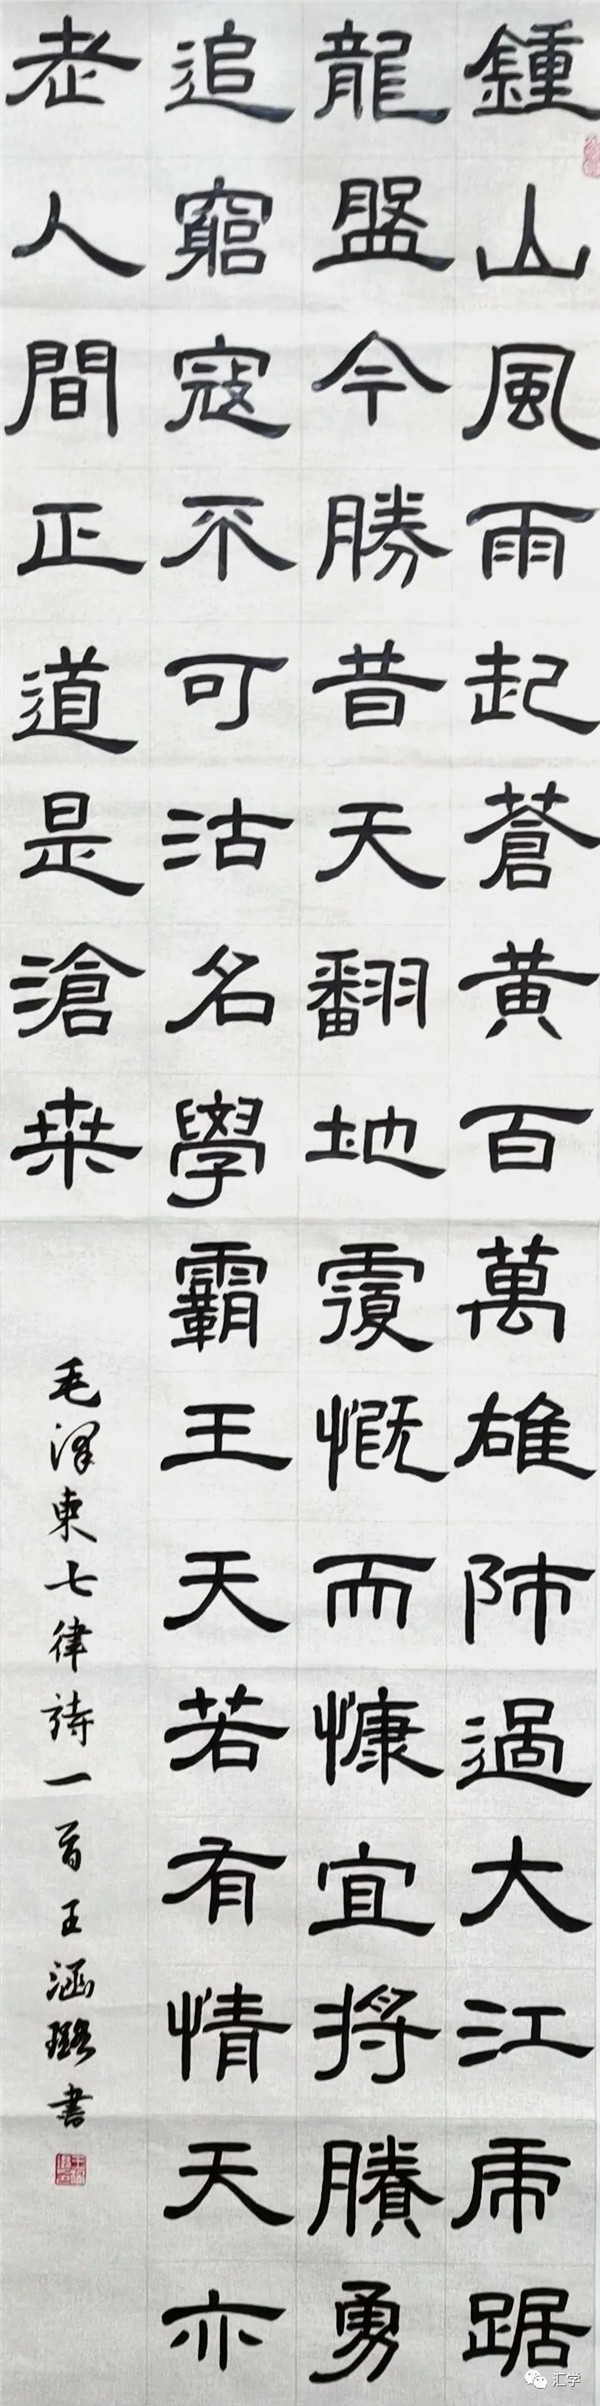 鍾山風雨起蒼黃百萬雄師過大江虎踞
龍盤今勝昔天翻地覆慨而慷宜將賸勇
追窮寇不可沽名學霸王天若有情天亦
老人間正道是滄桑
毛澤東七律詩一首王涵璐書
汇学